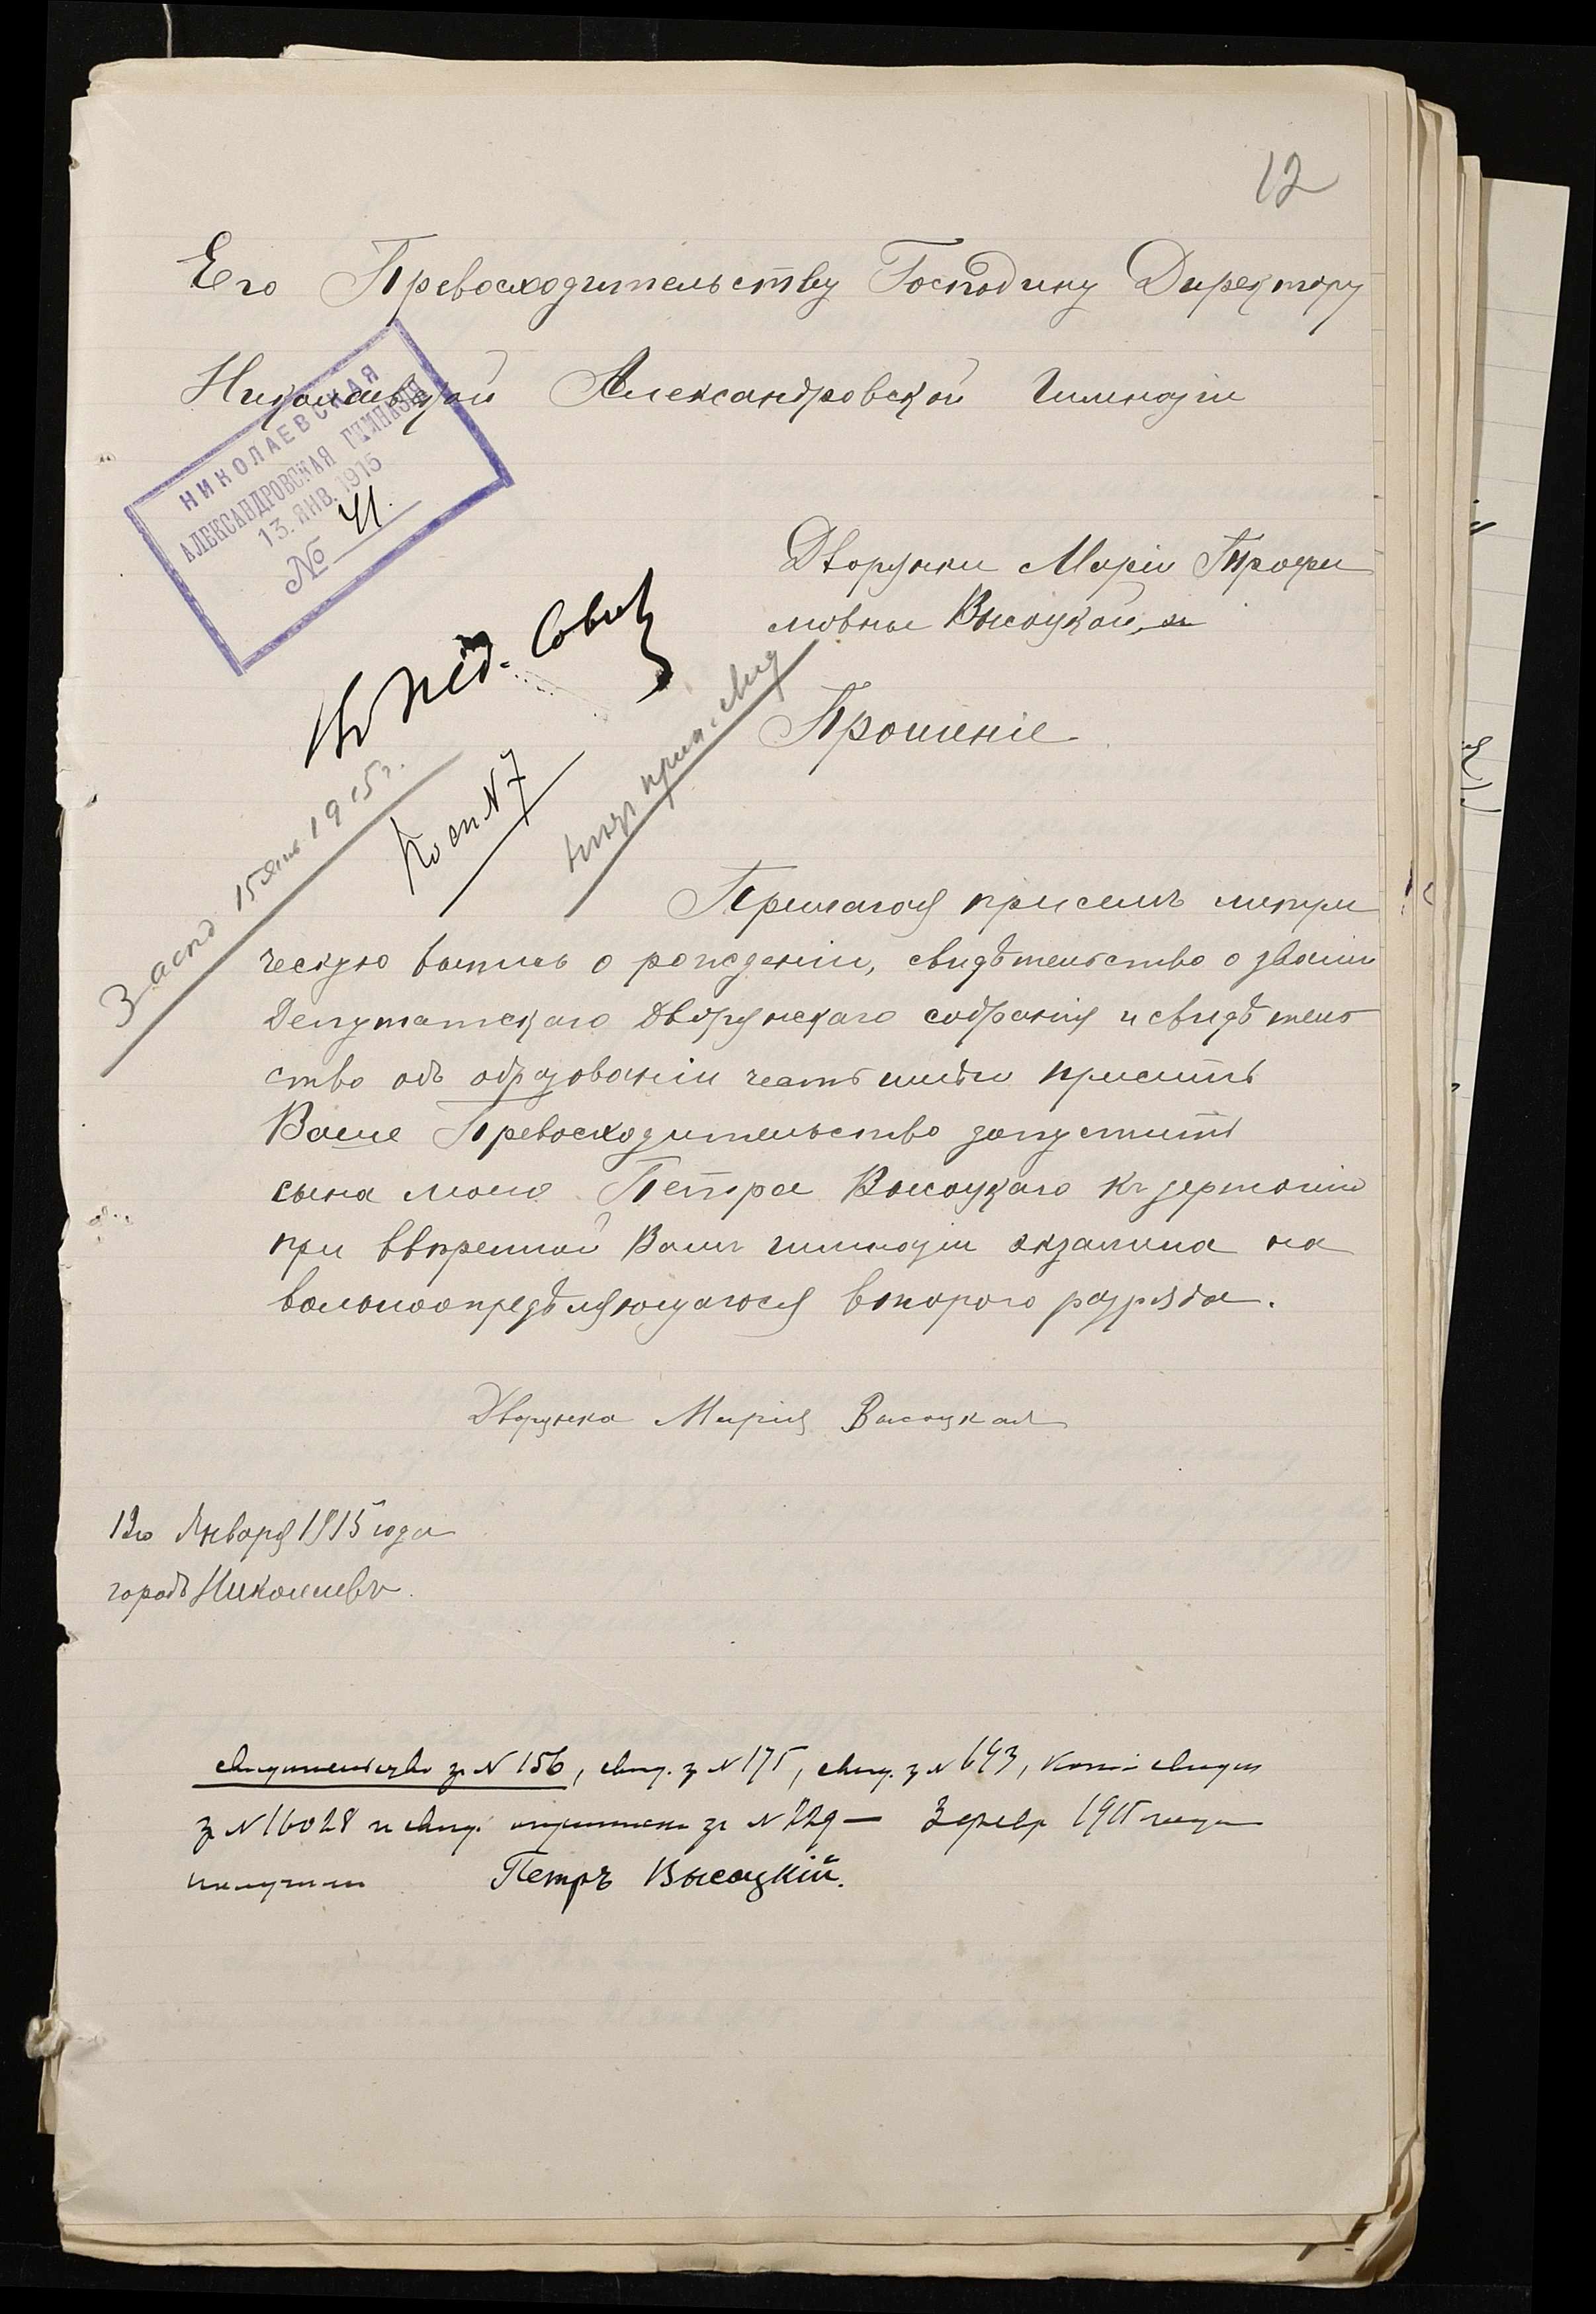 12
Его Превосходительству Господину Директору
Николаевской Александровской Гимназіи
НИКОЛАЕВСКАЯ
АЛЕКСАНДРОВСКАЯ ГИМНАЗІЯ
13. ЯНВ. 1915
№ 41.
Дворянки Маріи Трофи
мовны Высоцкой,
Въ пед. Совѣтъ
Прошеніе
Засѣд 15 янв 1915 г.
Прилагая при семъ метри
ческую выпись о рожденіи, свидѣтельство о званіи
Депутатскаго Дворянскаго собранія и свидѣтель
ство объ образованіи честь имѣю просить
Ваше Превосходительство допустить
сына моего Петра Высоцкаго къ держанію
при ввѣренной Вамъ гимназіи экзамена на
вольноопредѣляющагося второго разряда.
Дворянка Марія Высоцкая
12го Января 1915 года
городъ Николаевъ.
Свидетельство за № 156, свид. за № 175, свид. за № 643, копію свидет
за № 16028 и свид. за № 229 — 3 февр 1915 года
получилъ Петръ Высоцкій.